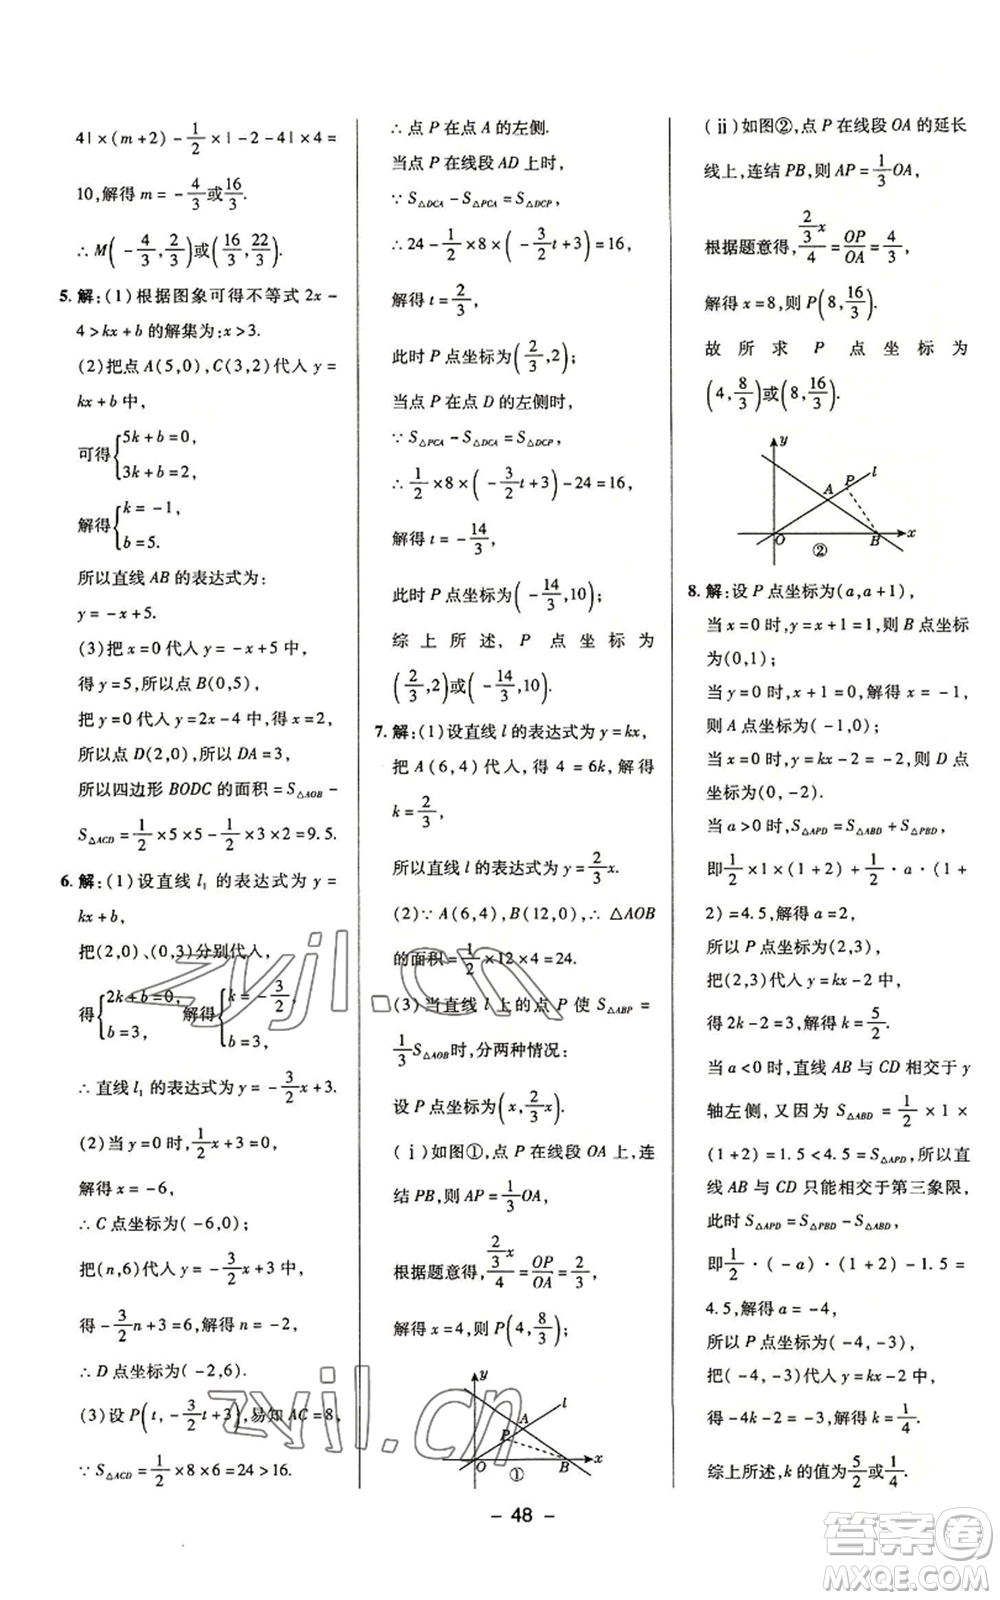 4|×(m+2)-1/2×|-2-4|×4=
10,解得 m=-4/3或16/3.
∴M(-4/3,2/3)或(16/3,22/3).
5.解:(1)根据图象可得不等式 2x-
4>kx+b 的解集为:x>3.
(2)把点A(5,0),C(3,2)代入 y=
kx+b 中,
可得{5k+b=0,
3k+b=2,
解得{k=-1,
b=5.
所以直线 AB 的表达式为:
y=-x+5.
(3)把 x=0 代入 y=-x+5 中,
得 y=5,所以点 B(0,5),
把 y=0 代入 y=2x-4 中,得 x=2,
所以点 D(2,0),所以 DA=3,
所以四边形 BODC 的面积=S△AOB-
S△ACD=1/2×5×5-1/2×3×2=9.5.
6.解:(1)设直线 l₁ 的表达式为 y=
kx+b,
把(2,0)、(0,3)分别代入,
得{2k+b=0,
b=3,
解得{k=-3/2,
b=3.
∴直线 l₁ 的表达式为 y=-3/2x+3.
(2)当 y=0 时,1/2x+3=0,
解得 x=-6,
∴C 点坐标为(-6,0);
把(n,6)代入 y=-3/2x+3,
得-3/2n+3=6,解得 n=-2,
∴D 点坐标为(-2,6).
(3)设P(t,-3/2t+3),易知 AC=8,
∵S△ACD=1/2×8×6=24>16.
∴点 P 在点 A 的左侧.
当点 P 在线段 AD 上时,
∵S△DCA-S△PCA=S△DCP,
∴24-1/2×8×(-3/2t+3)=16,
解得 t=2/3,
此时 P 点坐标为(2/3,2);
当点 P 在点 D 的左侧时,
∵S△PCA-S△DCA=S△DCP,
∴1/2×8×(-3/2t+3)-24=16,
解得 t=-14/3,
此时 P 点坐标为(-14/3,10);
综上所述,P 点坐标为
(2/3,2)或(-14/3,10).
7.解:(1)设直线 l 的表达式为 y=kx,
把 A(6,4)代入,得 4=6k,解得
k=2/3,
所以直线 l 的表达式为 y=2/3x.
(2)∵A(6,4),B(12,0),∴△AOB
的面积=1/2×12×4=24.
(3)当直线 l 上的点 P 使 S△ABP=
1/3S△AOB时,分两种情况:
设 P 点坐标为(x,2/3x).
(ⅰ)如图①,点 P 在线段 OA 上,连
结 PB,则 AP=1/3OA,
根据题意得,2/3x/4=OP/OA=2/3,
解得 x=4,则 P(4,8/3);
y
l
A
P
O
B
x
①
(ⅱ)如图②,点 P 在线段 OA 的延长
线上,连结 PB,则 AP=1/3OA,
根据题意得,2/3x/4=OP/OA=4/3,
解得 x=8,则 P(8,16/3).
故所求 P 点坐标为
(4,8/3)或(8,16/3).
y
l
A
P
O
B
x
②
8.解:设 P 点坐标为(a,a+1),
当 x=0 时,y=x+1=1,则 B 点坐标
为(0,1);
当 y=0 时,x+1=0,解得 x=-1,
则 A 点坐标为(-1,0);
当 x=0 时,y=kx-2=-2,则 D 点
坐标为(0,-2).
当 a>0 时,S△APD=S△ABD+S△PBD,
即1/2×1×(1+2)+1/2·a·(1+
2)=4.5,解得 a=2,
所以 P 点坐标为(2,3),
把(2,3)代入 y=kx-2,
得 2k-2=3,解得 k=5/2.
当 a<0 时,直线 AB 与 CD 相交于 y
轴左侧,又因为 S△ABD=1/2×1×
(1+2)=1.5<4.5=S△APD,所以直
线 AB 与 CD 只能相交于第三象限,
此时 S△APD=S△PBD-S△ABD,
即1/2·(-a)·(1+2)-1.5=
4.5,解得 a=-4,
所以 P 点坐标为(-4,-3),
把(-4,-3)代入 y=kx-2,
得-4k-2=-3,解得 k=1/4.
综上所述,k 的值为5/2或1/4.
- 48 -
zyjl.cn
zyjl.cn
答案卷
MXQE.COM